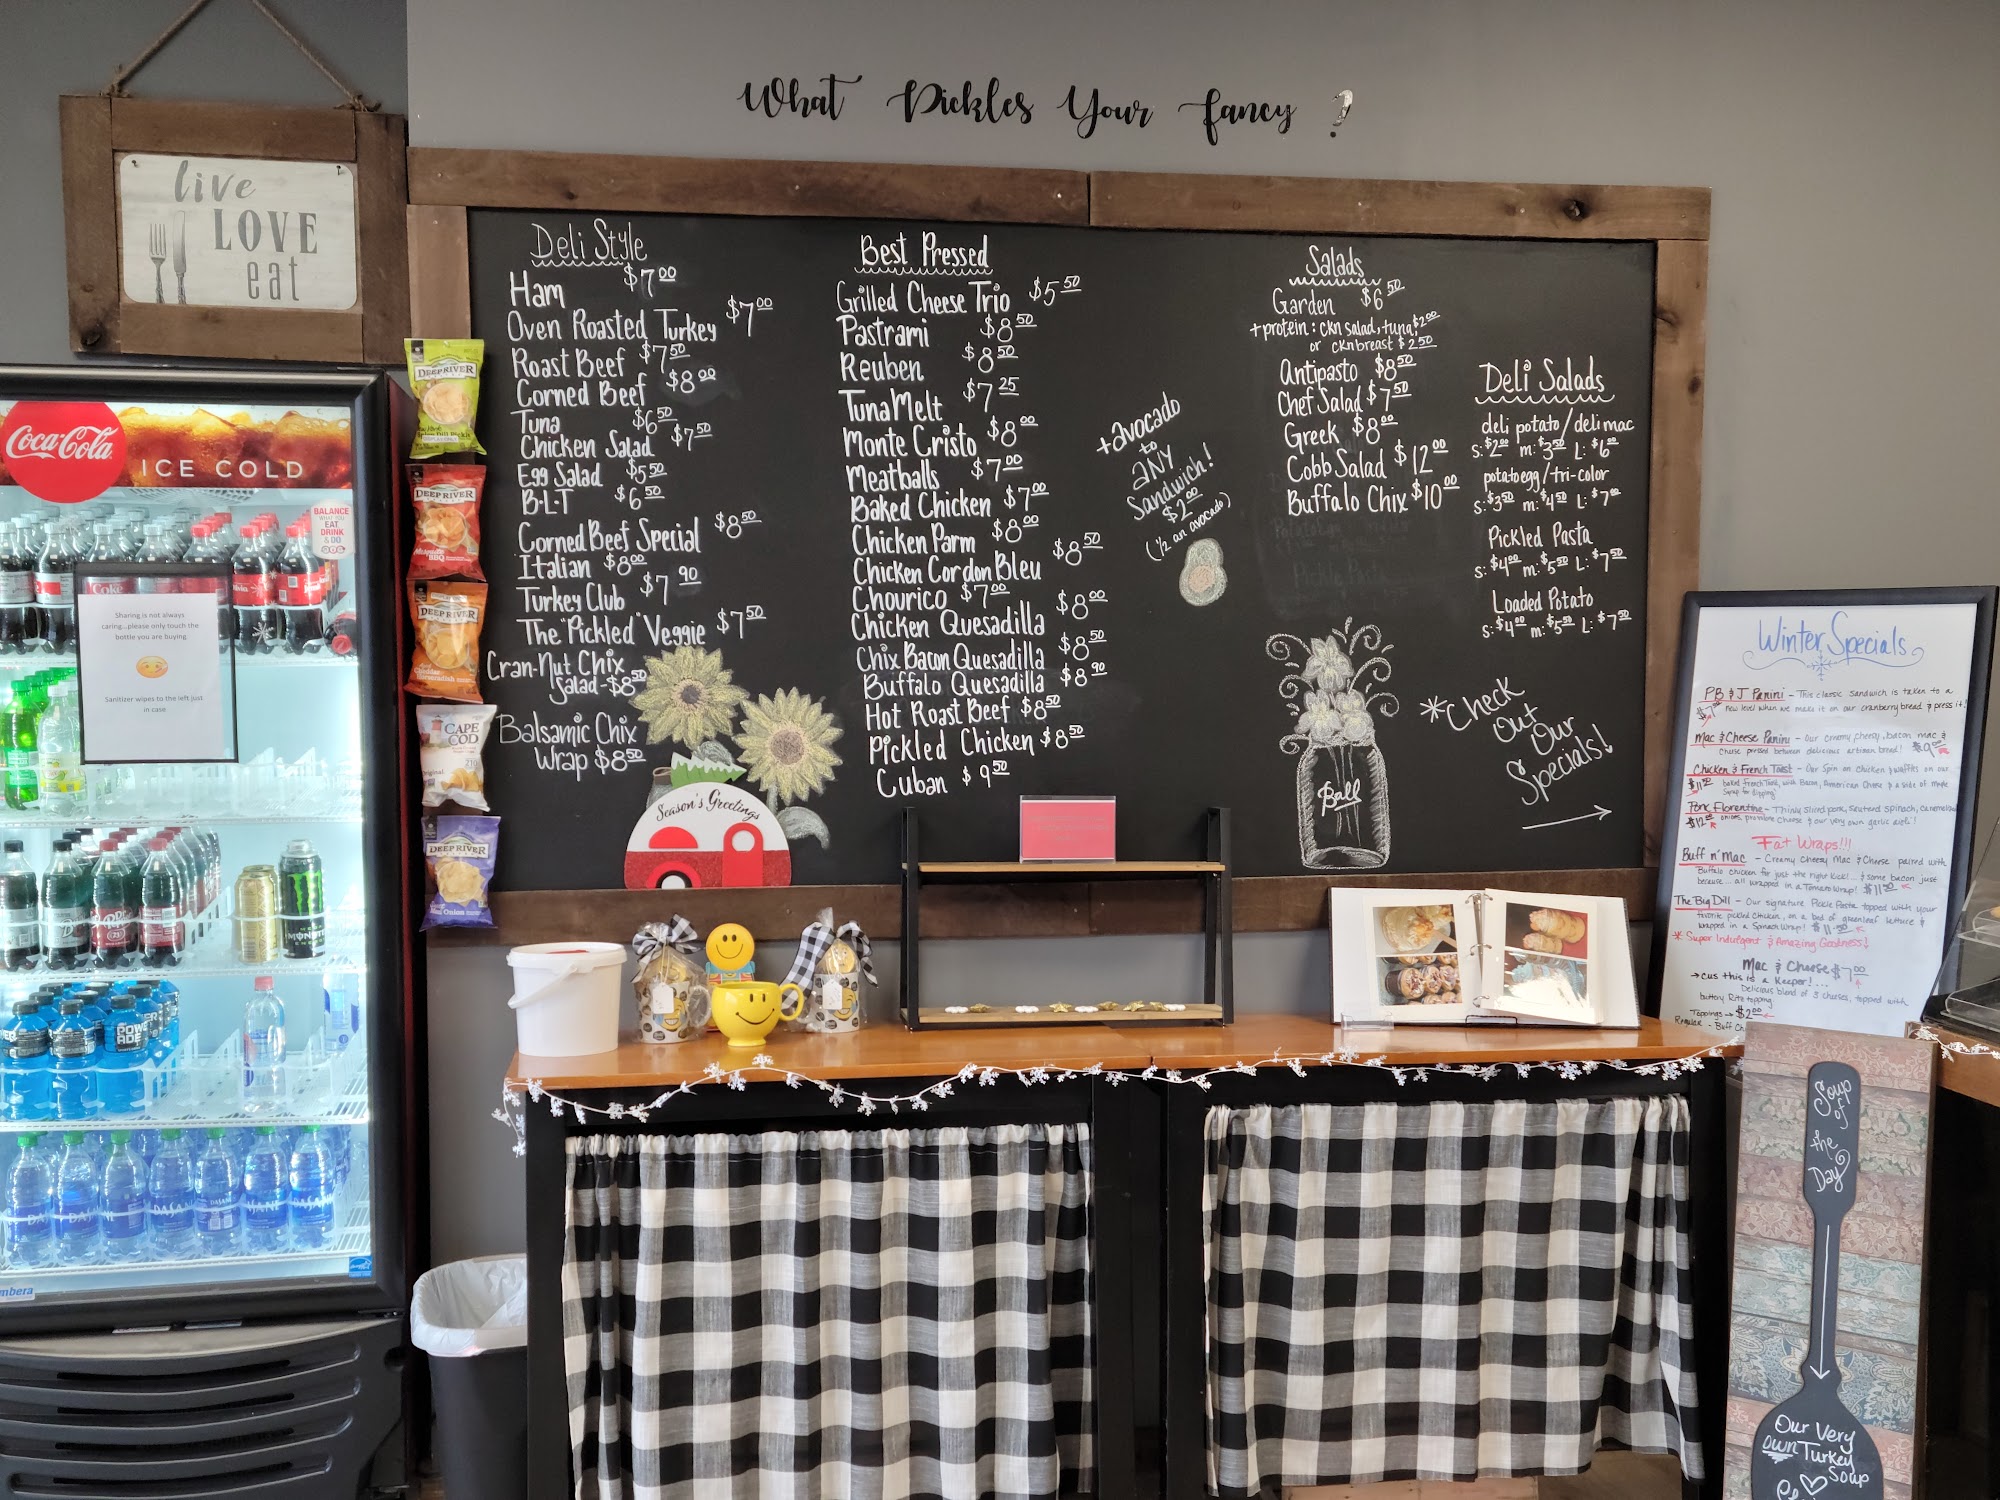 What Pickles Your Fancy ?
live
LOVE
eat
Coca-Cola
ICE COLD
BALANCE
WHAT YOU
EAT,
DRINK
& DO
Sharing is not always
caring...please only touch the
bottle you are buying.
Sanitizer wipes to the left just
in case
DEEP RIVER
DEEP RIVER
Mesquite
BBQ
DEEP RIVER
Cheddar
Horseradish
CAPE
COD
Original
DEEP RIVER
Onion
Deli Style
Ham $7.00
Oven Roasted Turkey $7.00
Roast Beef $7.50
Corned Beef $8.00
Tuna $6.50
Chicken Salad $7.50
Egg Salad $5.50
B·L·T $6.50
Corned Beef Special $8.50
Italian $8.00
Turkey Club $7.90
The "Pickled" Veggie $7.50
Cran-Nut Chix
Salad - $8.50
Balsamic Chix
Wrap $8.50
Season's Greetings
Best Pressed
Grilled Cheese Trio $5.50
Pastrami $8.50
Reuben $8.50
Tuna Melt $7.25
Monte Cristo $8.00
Meatballs $7.00
Baked Chicken $7.00
Chicken Parm $8.00
Chicken Cordon Bleu $8.50
Chourico $7.00
Chicken Quesadilla $8.00
Chix Bacon Quesadilla $8.50
Buffalo Quesadilla $8.90
Hot Roast Beef $8.50
Pickled Chicken $8.50
Cuban $9.50
+ avocado
to
ANY
Sandwich!
$2.00
(1/2 an avocado)
Salads
Garden $6.50
+ protein: ckn salad, tuna, $2.00
or ckn breast $2.50
Antipasto $8.50
Chef Salad $7.50
Greek $8.00
Cobb Salad $12.00
Buffalo Chix $10.00
Deli Salads
deli potato/deli mac
S: $2.00 m: $3.50 L: $6.00
potato egg/tri-color
S: $3.50 m: $4.50 L: $7.00
Pickled Pasta
S: $4.00 m: $5.50 L: $7.50
Loaded Potato
S: $4.00 m: $5.50 L: $7.50
*Check
Out
Our
Specials!
Ball
Winter Specials
PB & J Panini - This classic sandwich is taken to a
new level when we make it on our cranberry bread & press it!
Mac & Cheese Panini - Our creamy, cheesy, bacon mac &
cheese pressed between delicious artisan bread! $9.00
Chicken & French Toast - Our spin on chicken & waffles on our
$11.50 baked French Toast, with Bacon, American Cheese & a side of maple
Syrup for dipping!
Pork Florentine - Thinly sliced pork, sauteed spinach, caramelized
$12.00 onions, provolone cheese & our very own garlic aioli!
Fat Wraps!!!
Buff n' Mac - Creamy Cheesy Mac & Cheese paired with
Buffalo chicken for just the right kick!... & some bacon just
because... all wrapped in a Tomato Wrap! $11.50
The Big Dill - Our signature Pickle Pasta topped with your
favorite pickled chicken, on a bed of greenleaf lettuce &
wrapped in a Spinach Wrap! $11.50
* Super Indulgent & Amazing Goodness!
Mac & Cheese $7.00
→ cus this is a Keeper!...
Delicious blend of 3 cheeses, topped with
buttery Ritz topping.
Toppings → $2.00
Regular - Buff
Soup
of
the
Day
Our Very
own Turkey
Soup
POWER
ADE
MONSTER
DASANI
DASANI
DASANI
mbera